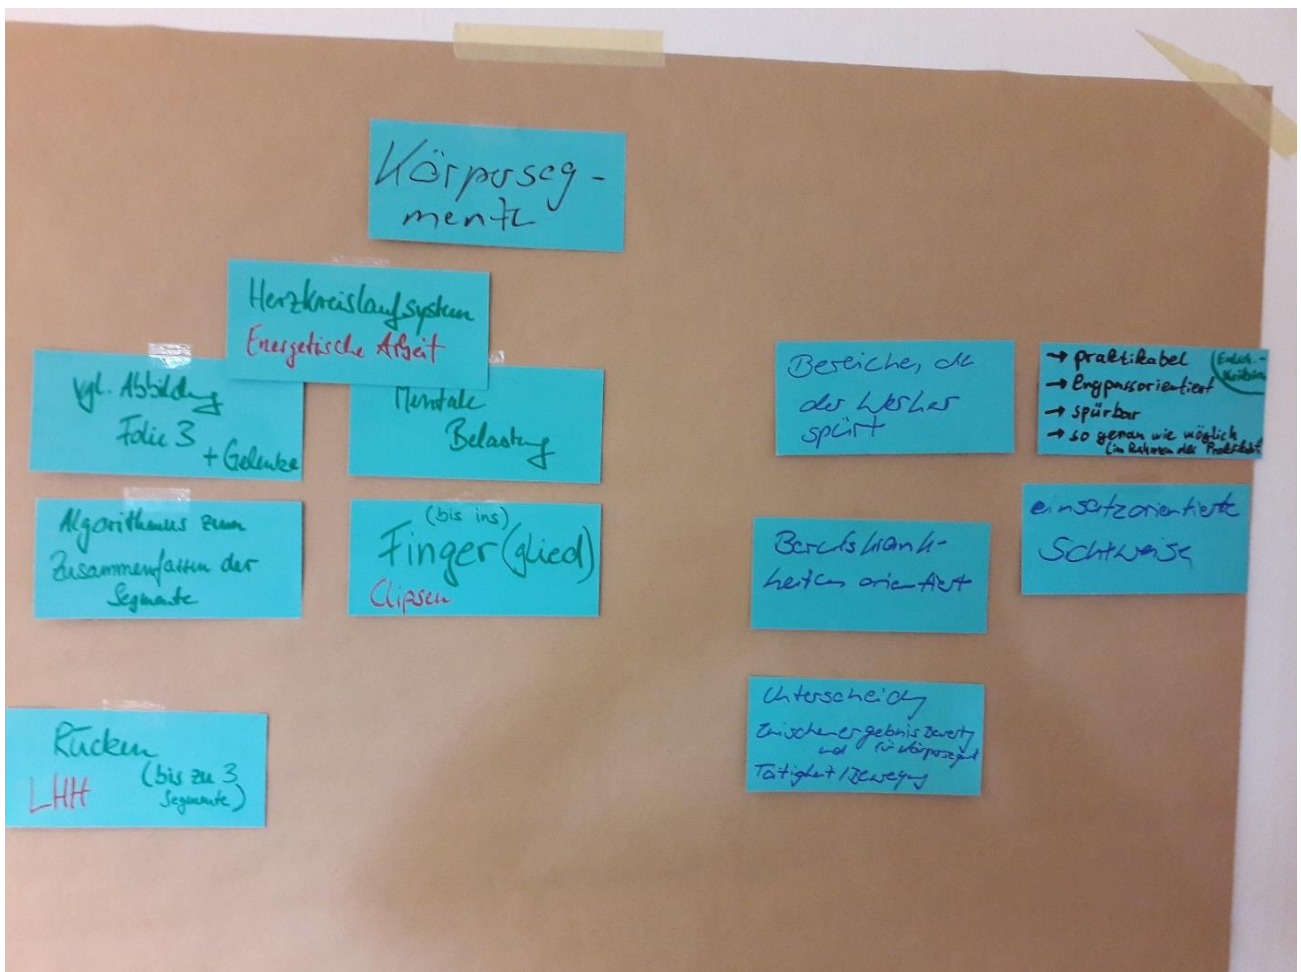 Körperseg-
mente
Herzkreislaufsystem
Energetische Arbeit
vgl. Abbildung
Folie 3
+ Gelenke
Mentale
Belastung
Algorithmus zum
Zusammenfassen der
Segmente
(bis ins)
Finger(glied)
Clipsen
Rücken
(bis zu 3
Segmente)
LHH
Bereiche, die
der Werker
spürt
→ praktikabel
→ Engpassorientiert
→ spürbar
→ so genau wie möglich
(im Rahmen der
Berufskrank-
heiten orientiert
einsatzorientierte
Sichtweise
Unterscheidung
Zwischenergebnis
und für Körpersegment
Tätigkeit / Bewegung